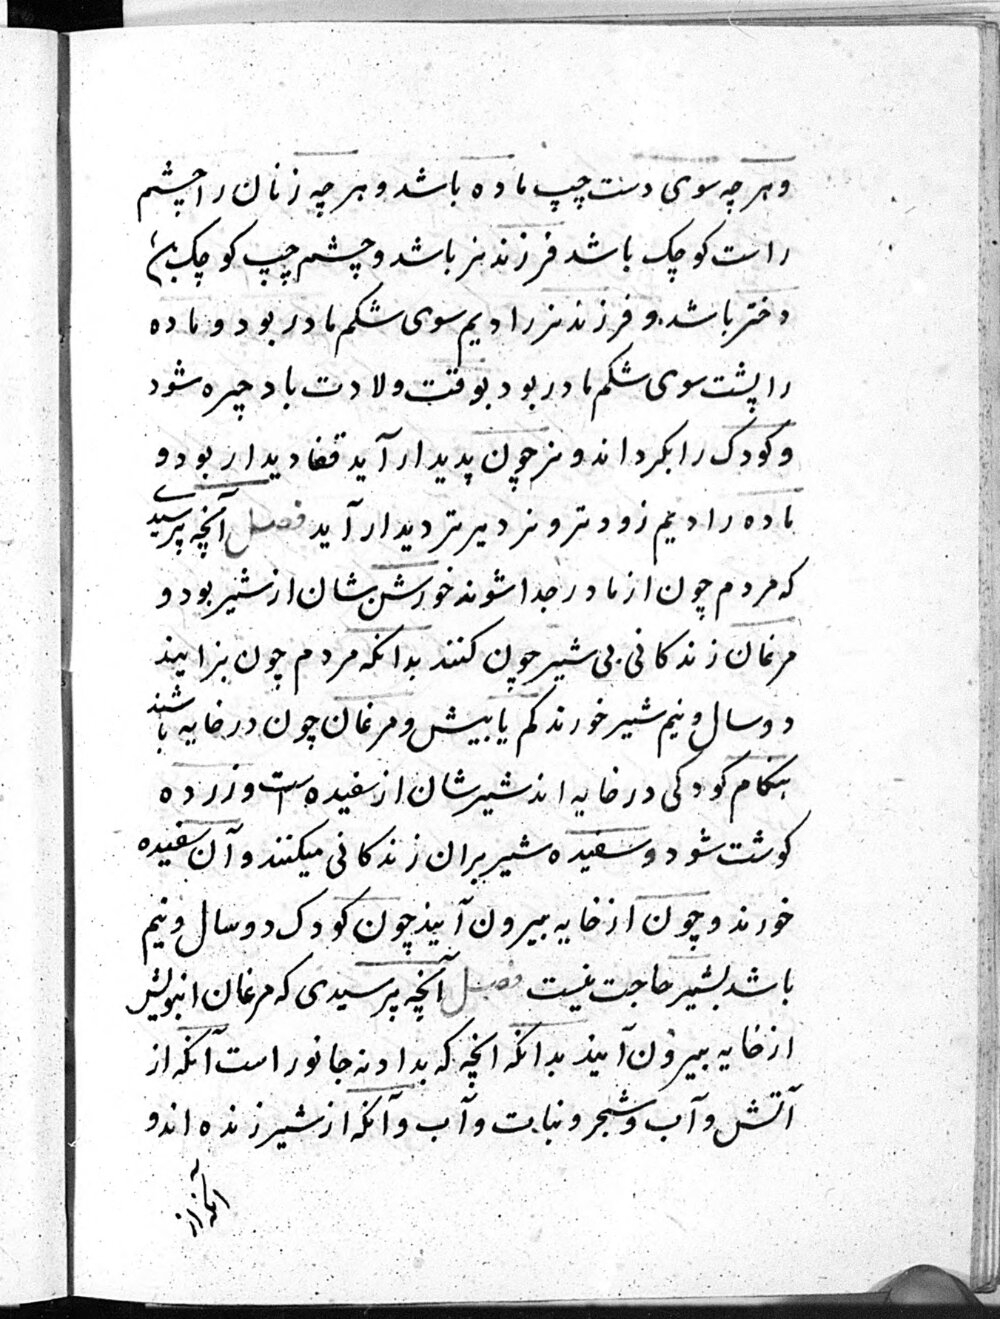 و هر چه سوی دست چپ ماده باشد و هر چه زنان را چشم
راست کوچک باشد فرزند نر باشد و چشم چپ کوچک بن
دختر باشد و فرزند نر را دیم سوی شکم مادر بود و ماده
را پشت سوی شکم مادر بود بوقت ولادت باد چیره شود
و کودک را بکرداند و نر چون پدیدار آید قفا دیدار بود و
ماده را دیم زودتر و نر دیرتر دیدار آید فصل آنچه پرسیدی
که مردم چون از مادر جدا شوند خورشن شان از شیر بود و
مرغان زندکانی بی شیر چون کنند بدانکه مردم چون بزایند
دو سال و نیم شیر خورند کم یا بیش و مرغان چون در خایه باشند
هنکام کودکی در خایه اند شیرشان از سفیده است و زرده
کوشت شود و سفیده شیر بران زندکانی میکنند و آن سفیده
خورند و چون از خایه بیرون آیند چون کودک دو سال و نیم
باشد بشیر حاجت نیست فصل آنچه پرسیدی که مرغان
از خایه بیرون آیند بدانکه انچه که بداد نه جانور است آنکه از
آتش و آب و شجر و نبات و آب و آنکه از شیر زنده اند و
آنکه از